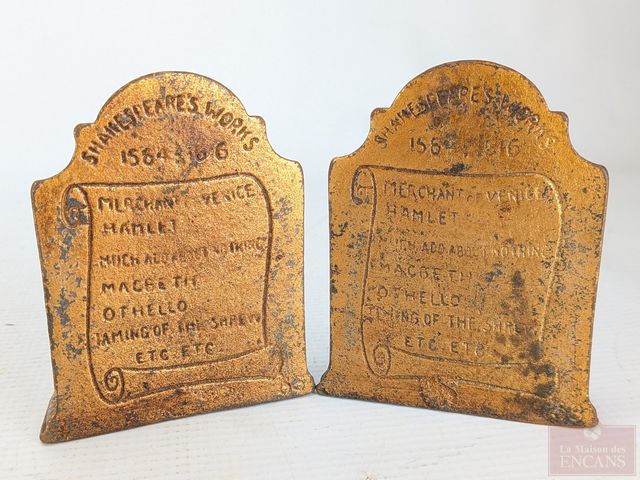 SHAKESPEARES WORKS
1564 1616
MERCHANT OF VENICE
HAMLET
MUCH ADO ABOUT NOTHING
MACBETH
OTHELLO
TAMING OF THE SHREW
ETC ETC
SHAKESPEARES WORKS
1564 1616
MERCHANT OF VENICE
HAMLET
MUCH ADO ABOUT NOTHING
MACBETH
OTHELLO
TAMING OF THE SHREW
ETC ETC
La Maison des
ENCANS